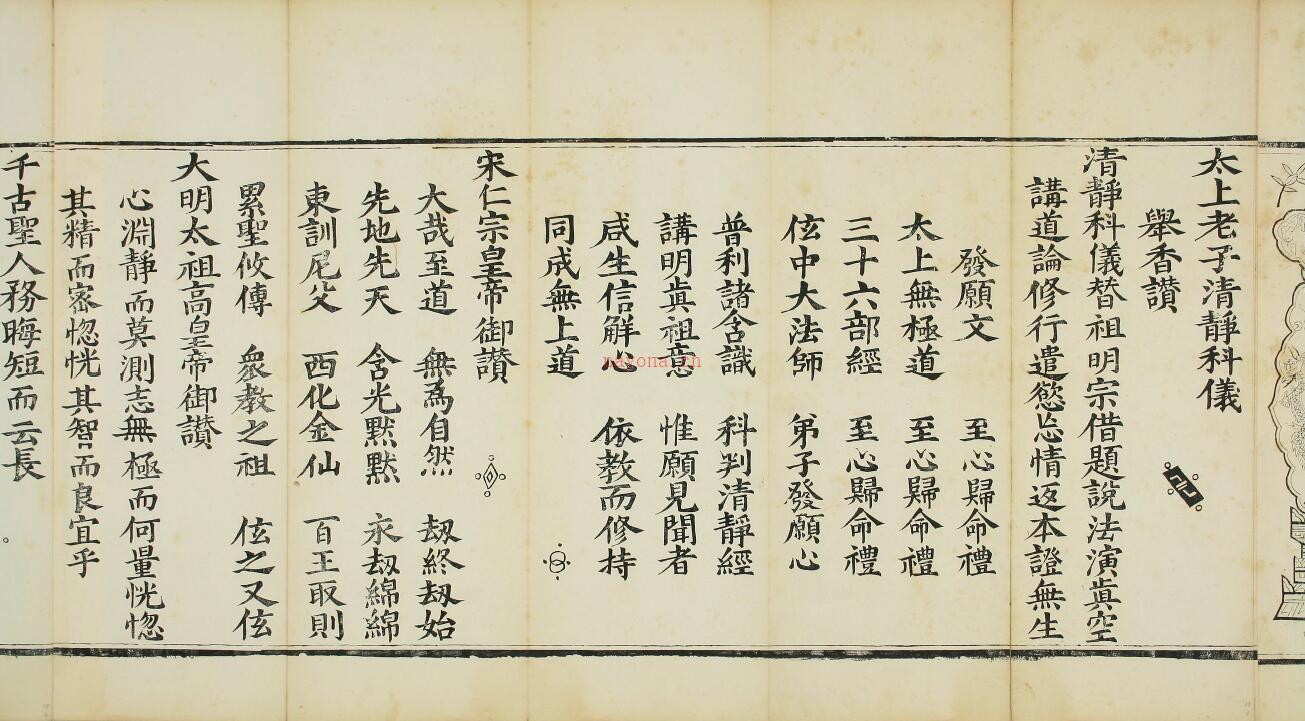 太上老子清靜科儀
舉香讃
清靜科儀替祖明宗借題說法演眞空
講道論修行遣慾忘情返本證無生
發願文 至心歸命禮
太上無極道 至心歸命禮
三十六部經 至心歸命禮
伭中大法師 弟子發願心
普利諸含識 科判清靜經
講明眞祖意 惟願見聞者
咸生信解心 依教而修持
同成無上道
宋仁宗皇帝御讃
大哉至道 無爲自然 刼終刼始
先地先天 含光默默 永刼綿綿
東訓尼父 西化金仙 百王取則
累聖攸傳 衆教之祖 伭之又伭
大明太祖高皇帝御讃
心淵靜而莫測志無極而何量恍惚
其精而密惚恍其智而良宜乎
千古聖人務晦短而云長
nayona.cn